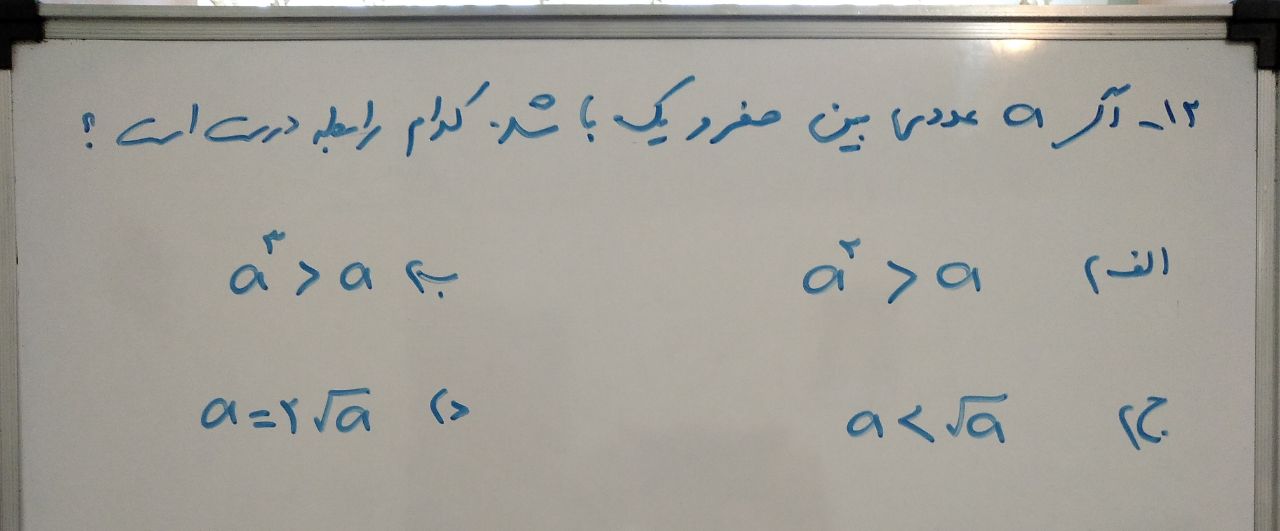 ۱۲- اگر a عددی بین صفر و یک باشد. کدام رابطه درست است؟
الف) a² > a
ب) a³ > a
ج) a < √a
د) a = ۲√a